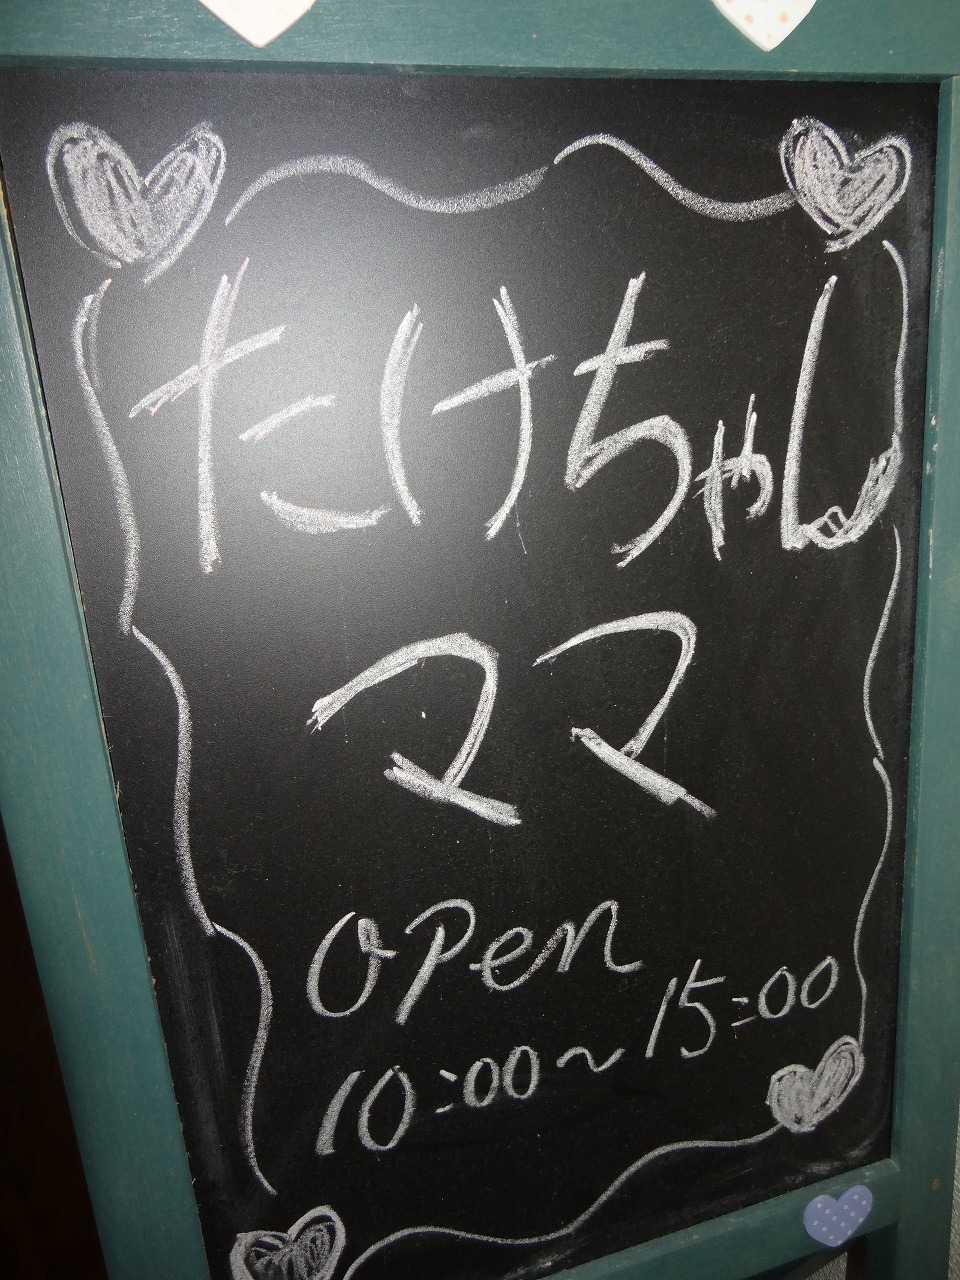 たけちゃん
ママ
open
10:00~15:00